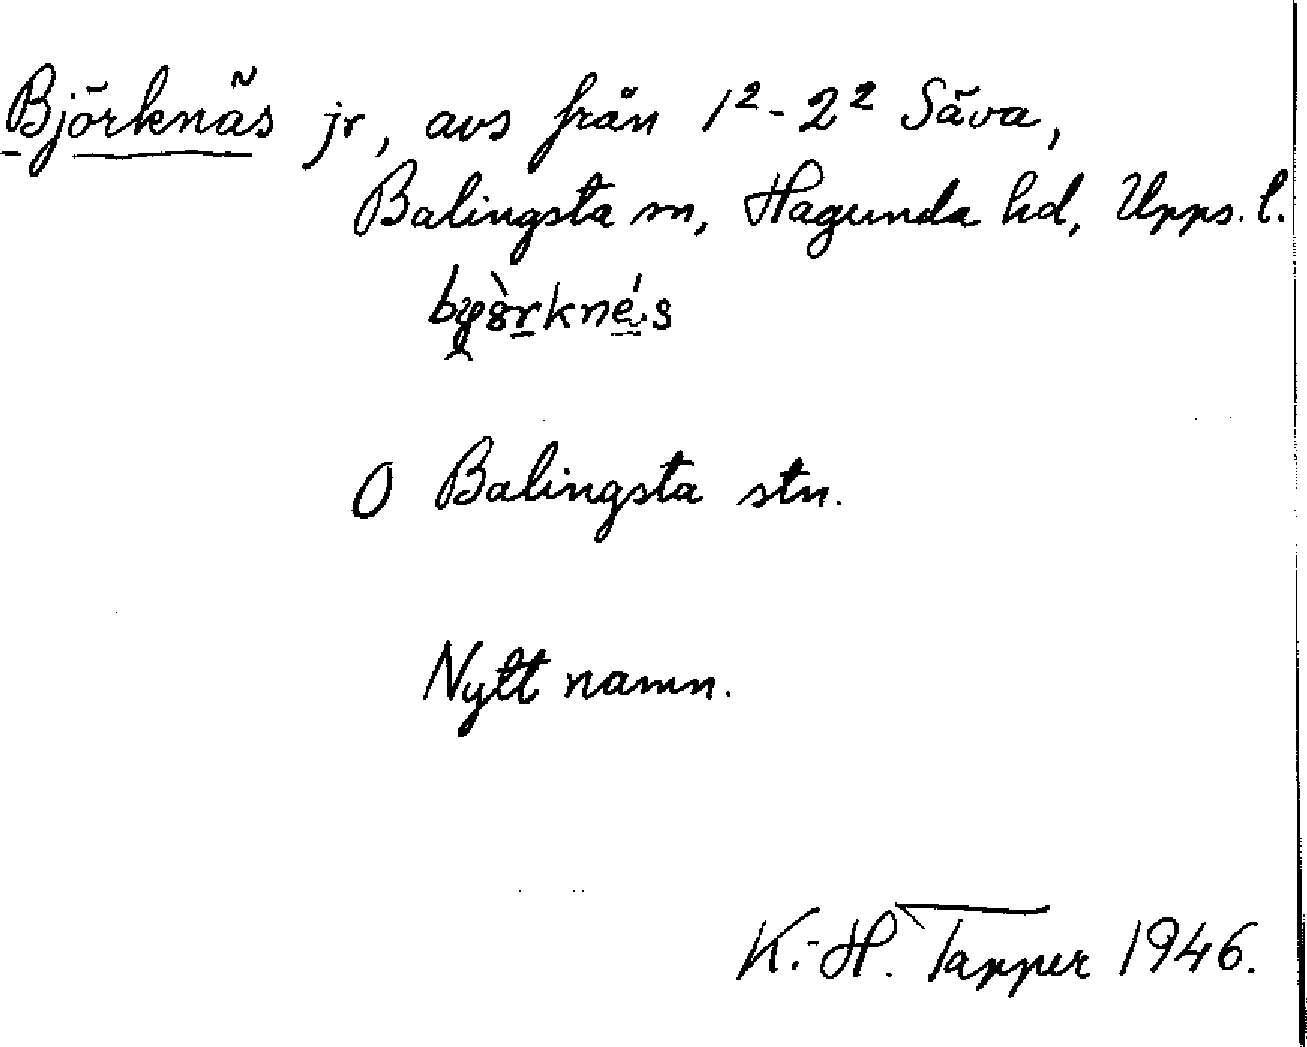 Björknäs jr, avs från 1²-2² Säva,
Balingsta sn, Hagunda hd, Upps. l.
O Balingsta stn.
Nytt namn.
K.-H. Tapper 1946.